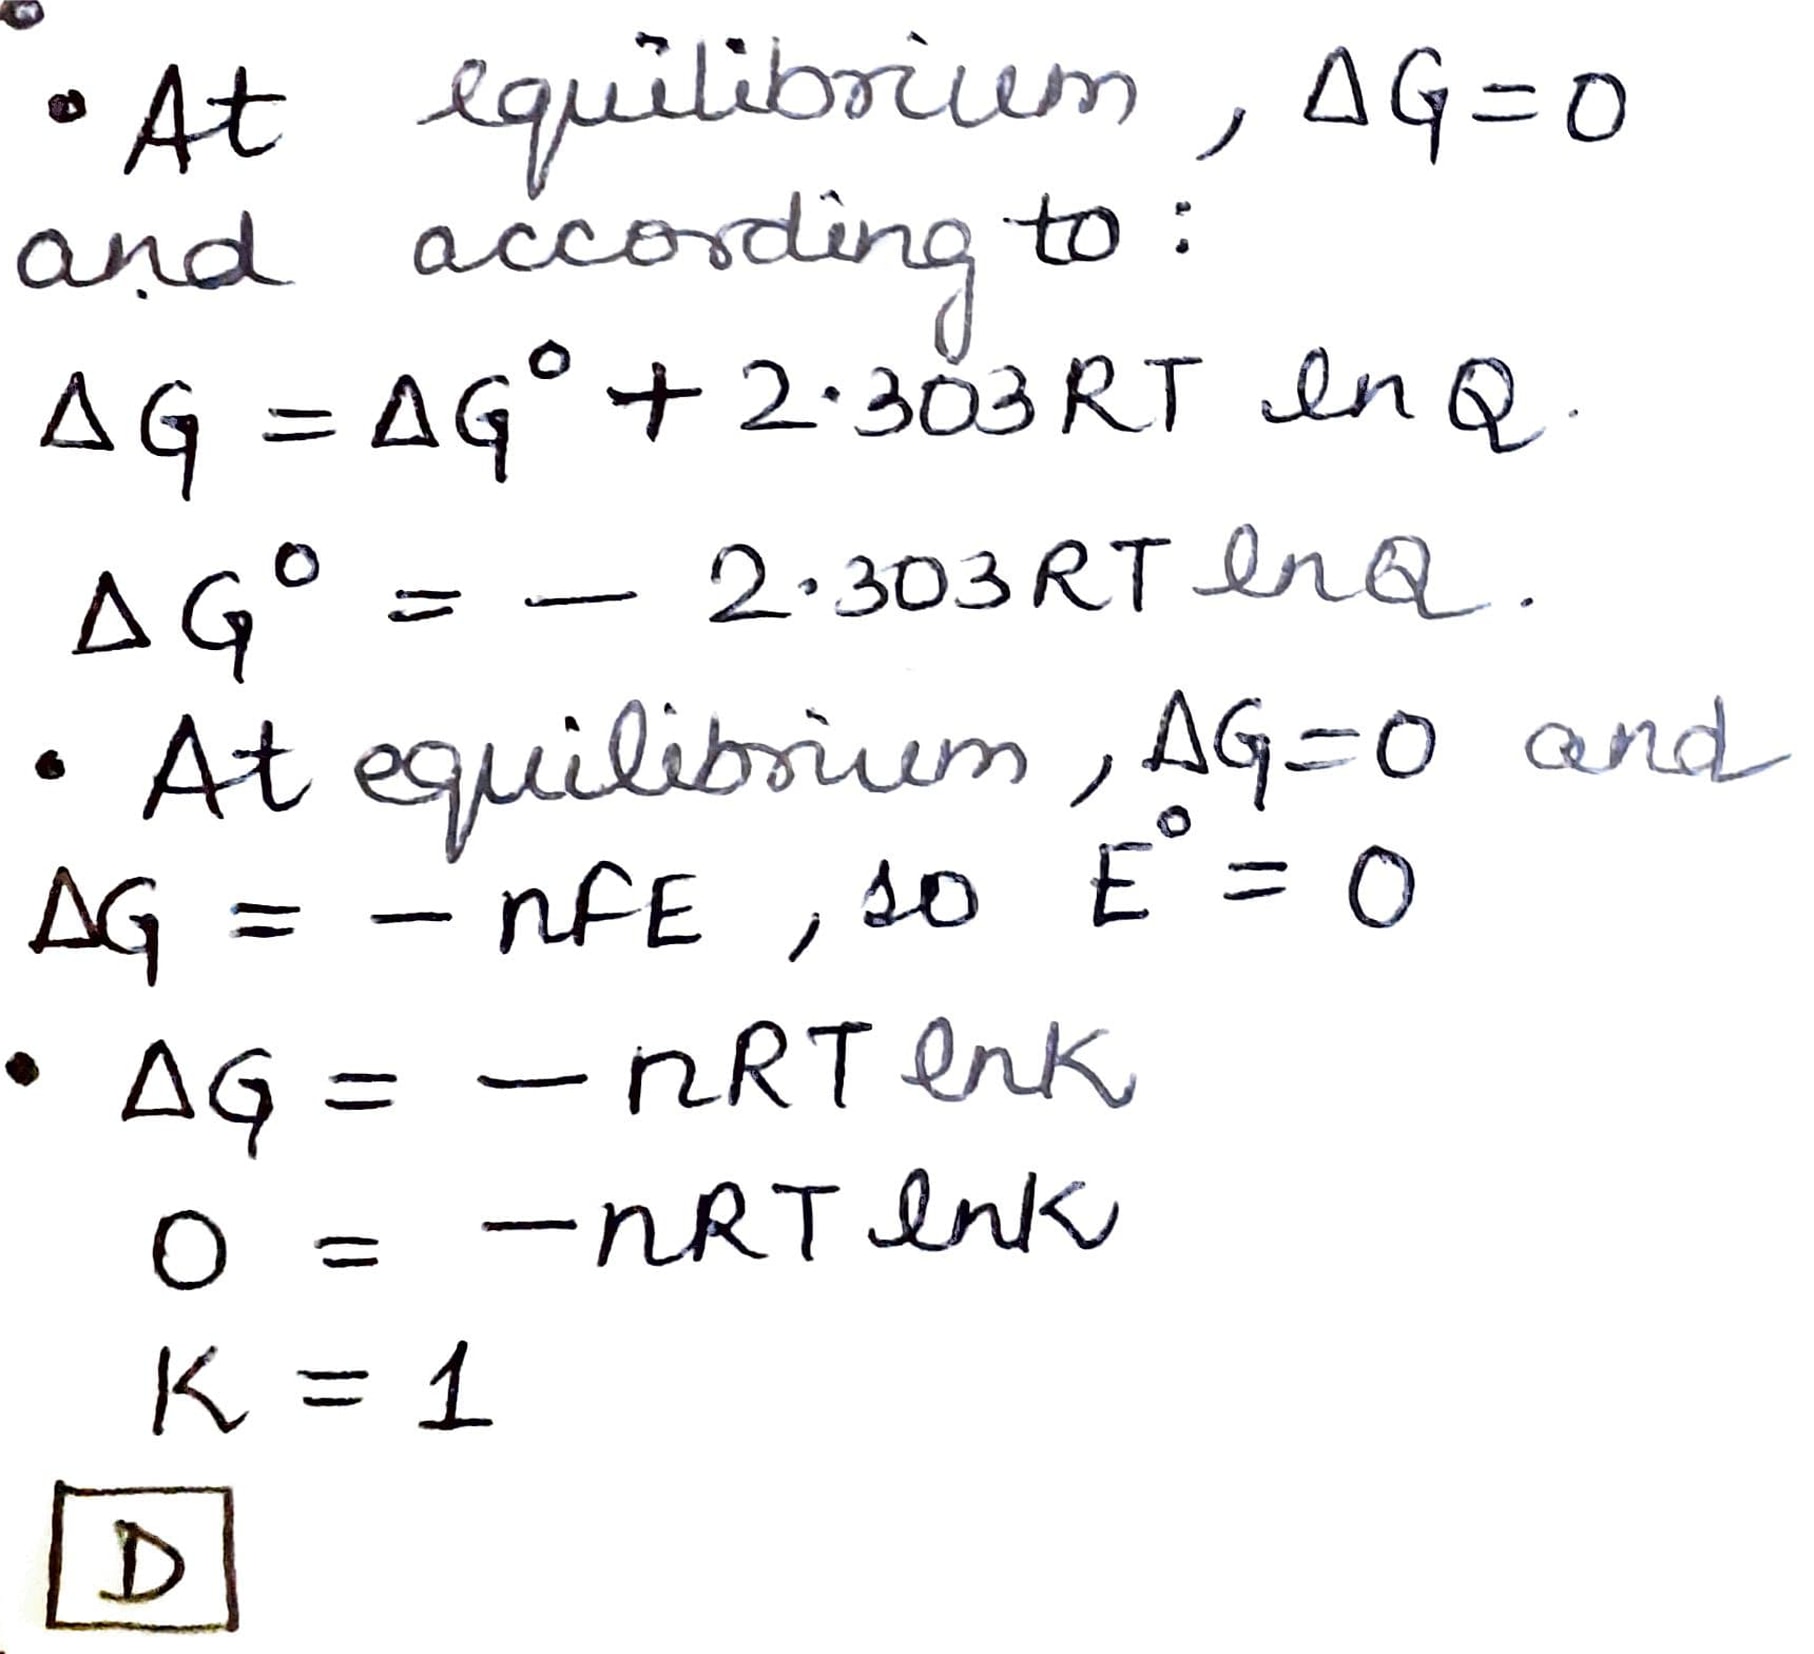 • At equilibrium, ΔG=0
and according to:
ΔG = ΔG° + 2.303RT ln Q.
ΔG° = − 2.303RT lnQ.
• At equilibrium, ΔG=0 and
ΔG = − nFE, so E° = 0
• ΔG = − nRT lnK
0 = −nRT lnK
K = 1
D